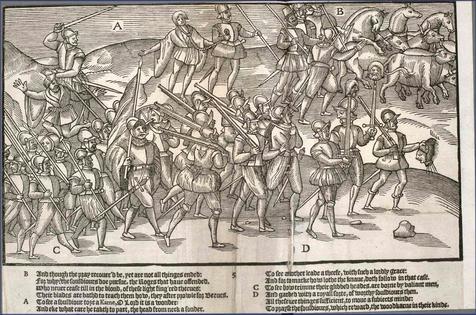 A
B
C
D
B And though the pray recouer'd be, yet are not all thinges ended:
For why the souldiours doe pursue, the Rogues that haue offended,
Who neuer cease till in the bloud, of these light fingred theeues:
Their blades are bathd to teach them how, they after prowle for Beeues.
A To see a souldiour toze a Karne, O Lord it is a wonder:
And eke what care he taketh to part, the head from neck a sonder.
5
To see another leade a theefe, with such a lordly grace:
And for to marke how lothe the knaue, doth follow in that case.
C To see how trimme their glibbed heades, are borne by valiant men,
D And garded with a royall sorte, of worthy souldiours then.
All these are thinges sufficient, to moue a subiects minde:
To prayse the souldiours, which reward, the woodkarne in their kinde.